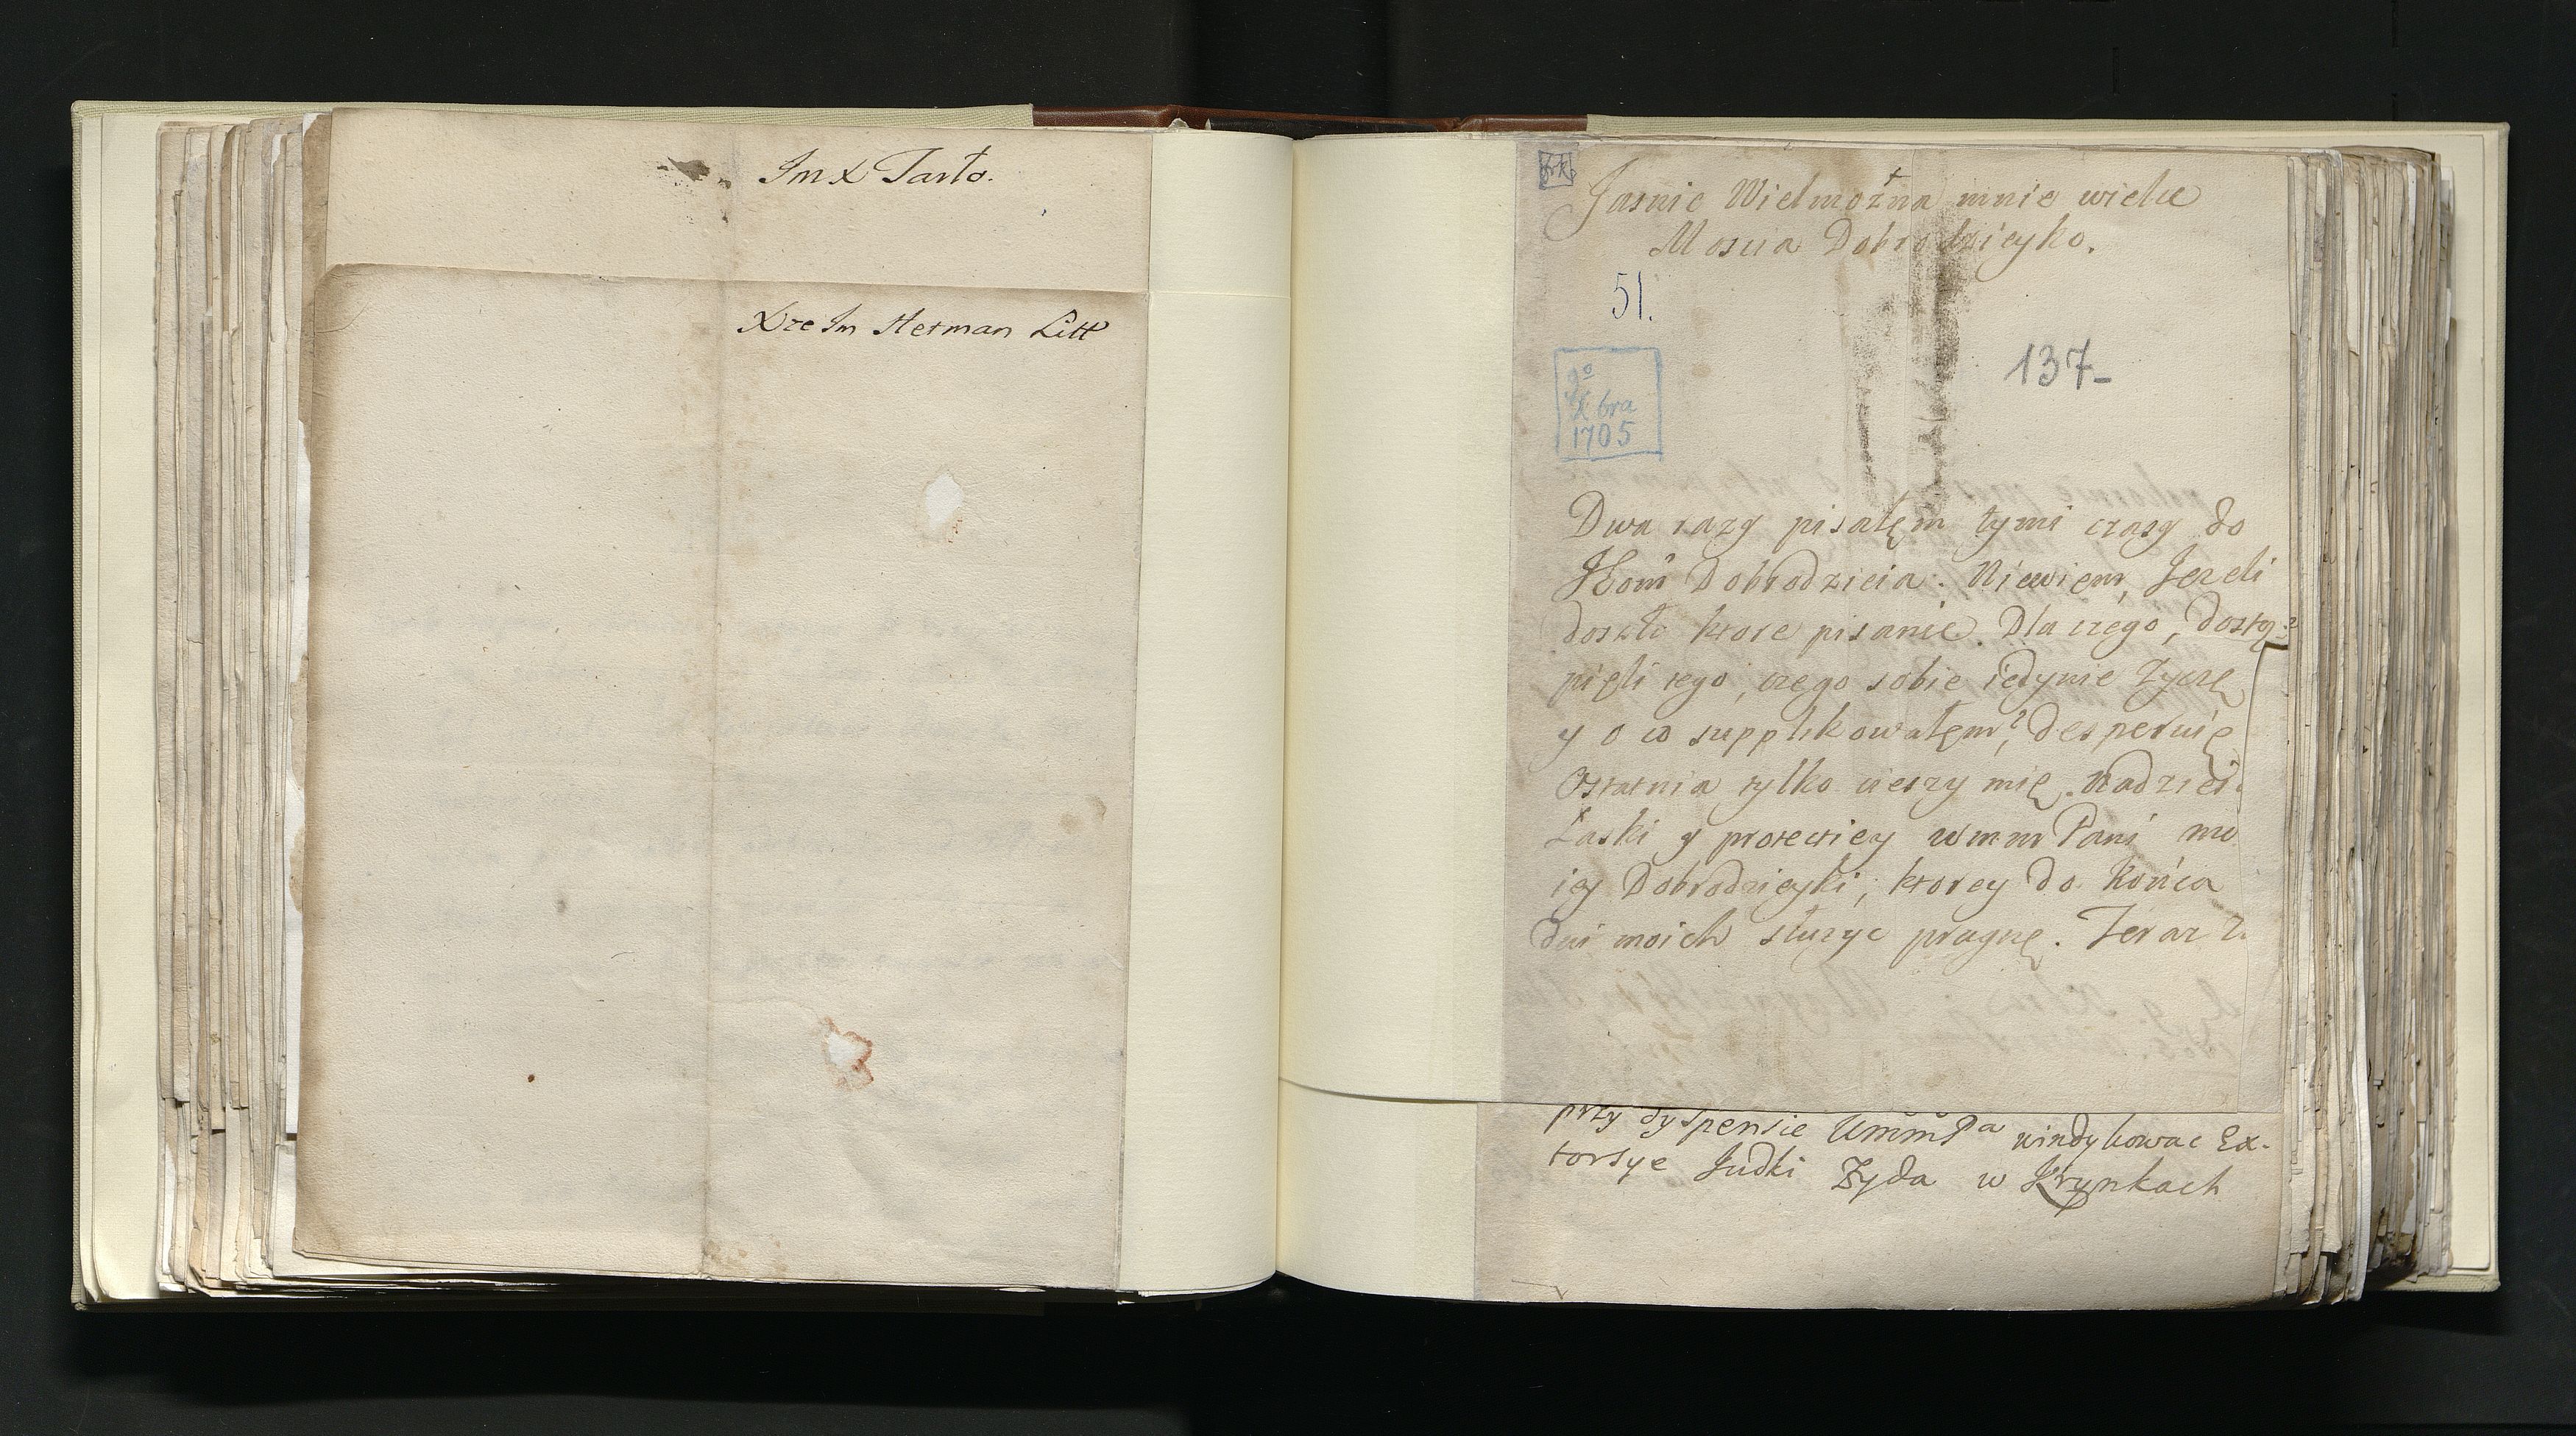 Im X Tarło.
Xże Im Hetman Litt
Jasnie Wielmożna mnie wielce
Moscia Dobrodzieyko.
51.
137-
9º
Xbra
1705
Dwa razy pisałęm tymi czasy do
Dobrodzieia. Niewięm, Jezeli
doszło ktore pisanie. Dla czego, dostą-
pięli tego, czego sobie iedynie życzę
y o co supplikowałęm?, desperuię
Ostatnia tylko cieszy mię nadzieia
Łaski y protectiey wmm Pani mo
iey Dobrodzieyki, ktorey do końca
dni moich słuzyc pragnę. Teraz z.
przy dyspensie UmmPa windykowac Ex-
torsye Judki Zyda w Krynkach